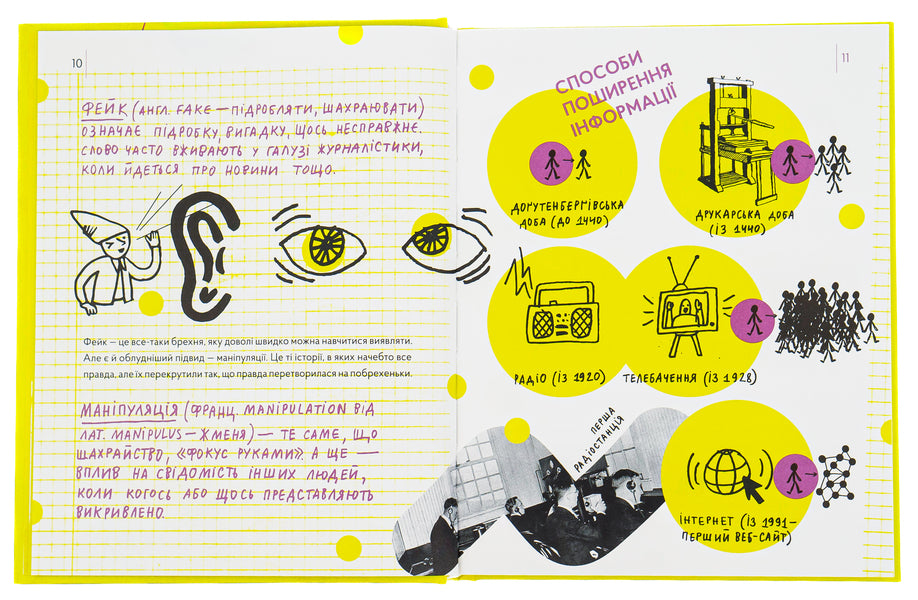 10
ФЕЙК (АНГЛ. FAKE — ПІДРОБЛЯТИ, ШАХРАЮВАТИ)
ОЗНАЧАЄ ПІДРОБКУ, ВИГАДКУ, ЩОСЬ НЕСПРАВЖНЄ.
СЛОВО ЧАСТО ВЖИВАЮТЬ У ГАЛУЗІ ЖУРНАЛІСТИКИ,
КОЛИ ЙДЕТЬСЯ ПРО НОВИНИ ТОЩО.
Фейк — це все-таки брехня, яку доволі швидко можна навчитися виявляти.
Але є й облудніший підвид — маніпуляції. Це ті історії, в яких начебто все
правда, але їх перекрутили так, що правда перетворилася на побрехеньки.
МАНІПУЛЯЦІЯ (ФРАНЦ. MANIPULATION ВІД
ЛАТ. MANIPULUS — ЖМЕНЯ) — ТЕ САМЕ, ЩО
ШАХРАЙСТВО, «ФОКУС РУКАМИ». А ЩЕ —
ВПЛИВ НА СВІДОМІСТЬ ІНШИХ ЛЮДЕЙ,
КОЛИ КОГОСЬ АБО ЩОСЬ ПРЕДСТАВЛЯЮТЬ
ВИКРИВЛЕНО.
11
СПОСОБИ
ПОШИРЕННЯ
ІНФОРМАЦІЇ
ДОҐУТЕНБЕРҐІВСЬКА
ДОБА (ДО 1440)
ДРУКАРСЬКА ДОБА
(ІЗ 1440)
РАДІО (ІЗ 1920)
ТЕЛЕБАЧЕННЯ (ІЗ 1928)
ПЕРША
РАДІОСТАНЦІЯ
ІНТЕРНЕТ (ІЗ 1991 —
ПЕРШИЙ ВЕБ-САЙТ)